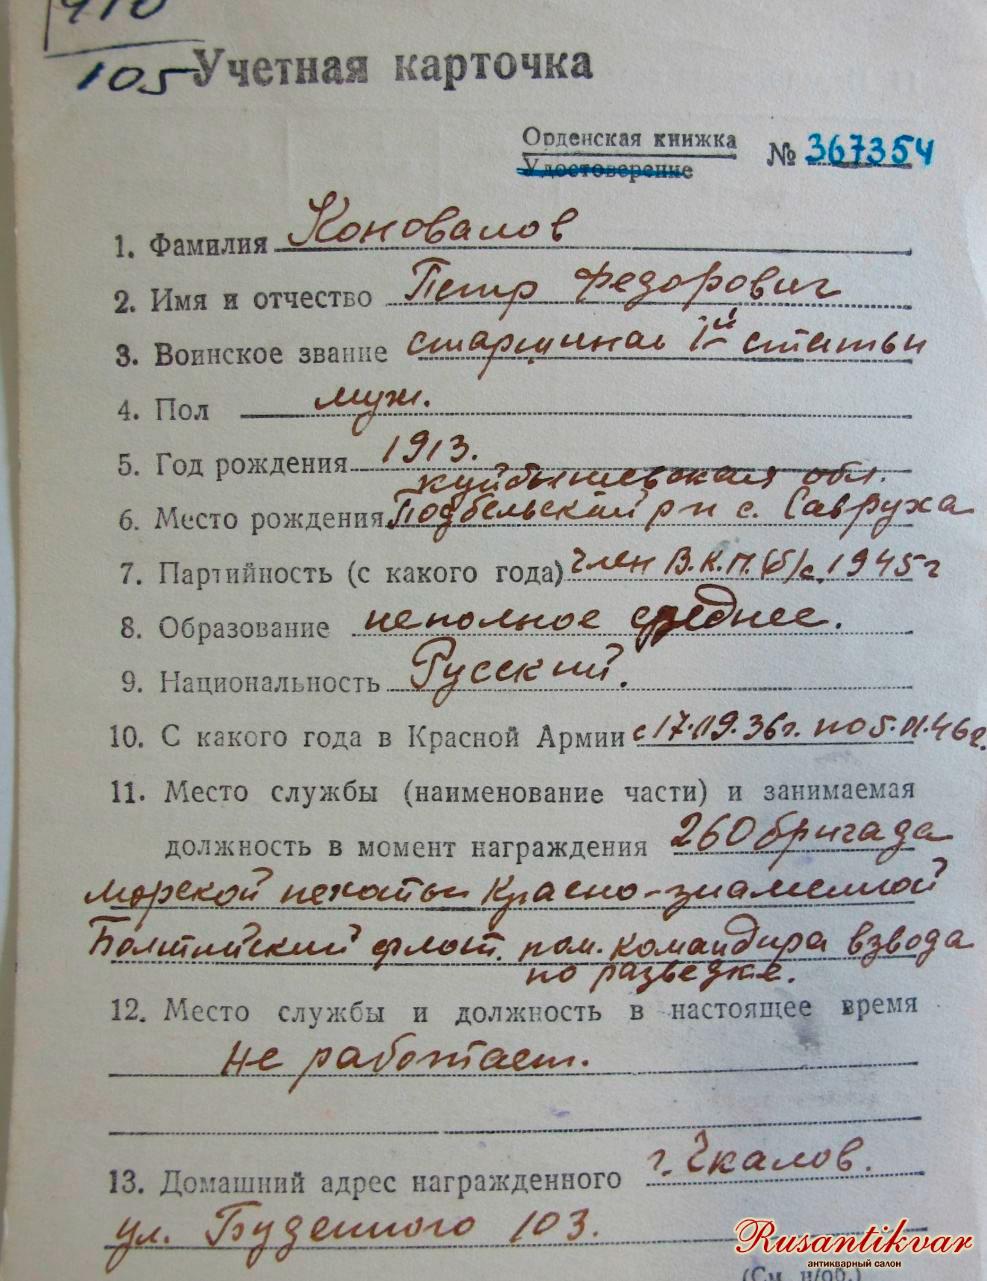 105
Учетная карточка
Орденская книжка
Удостоверение
№ 367354
1. Фамилия Коновалов
2. Имя и отчество Петр Федорович
3. Воинское звание старшина 1й статьи
4. Пол муж.
5. Год рождения 1913.
куйбышевская обл.
6. Место рождения Подбельский р-н с. Савруха
7. Партийность (с какого года) член В.К.П.(б) с. 1945г
8. Образование неполное среднее.
9. Национальность Русский.
10. С какого года в Красной Армии с 17.09.36г. по 5.VI.46г.
11. Место службы (наименование части) и занимаемая
должность в момент награждения 260 бригада
морской пехоты Красно-знаменной
Балтийский флот. пом. командира взвода
по разведке.
12. Место службы и должность в настоящее время
не работает.
13. Домашний адрес награжденного г. Чкалов.
ул. Буденного 103.
(См. н/об.)
Rusantikvar
антикварный салон